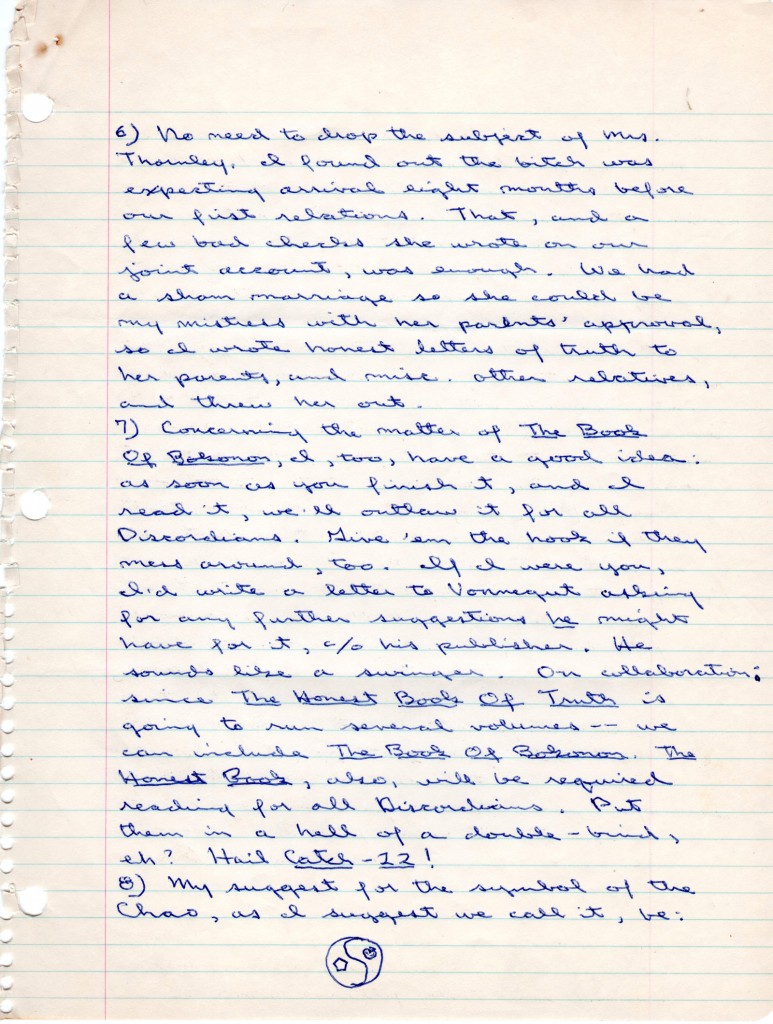 6) No need to drop the subject of Mrs.
Thornley. I found out the bitch was
expecting arrival eight months before
our first relations. That, and a
few bad checks she wrote on our
joint account, was enough. We had
a sham marriage so she could be
my mistress with her parents' approval,
so I wrote honest letters of truth to
her parents, and misc. other relatives,
and threw her out.
7) Concerning the matter of The Book
Of Bokonon, I, too, have a good idea:
as soon as you finish it, and I
read it, we'll outlaw it for all
Discordians. Give 'em the hook if they
mess around, too. If I were you,
I'd write a letter to Vonnegut asking
for any further suggestions he might
have for it, c/o his publisher. He
sounds like a swinger. On collaboration:
since The Honest Book Of Truth is
going to run several volumes -- we
can include The Book Of Bokonon. The
Honest Book, also, will be required
reading for all Discordians. Put
them in a hell of a double-bind,
eh? Hail Catch-22!
8) My suggest for the symbol of the
Chao, as I suggest we call it, be: